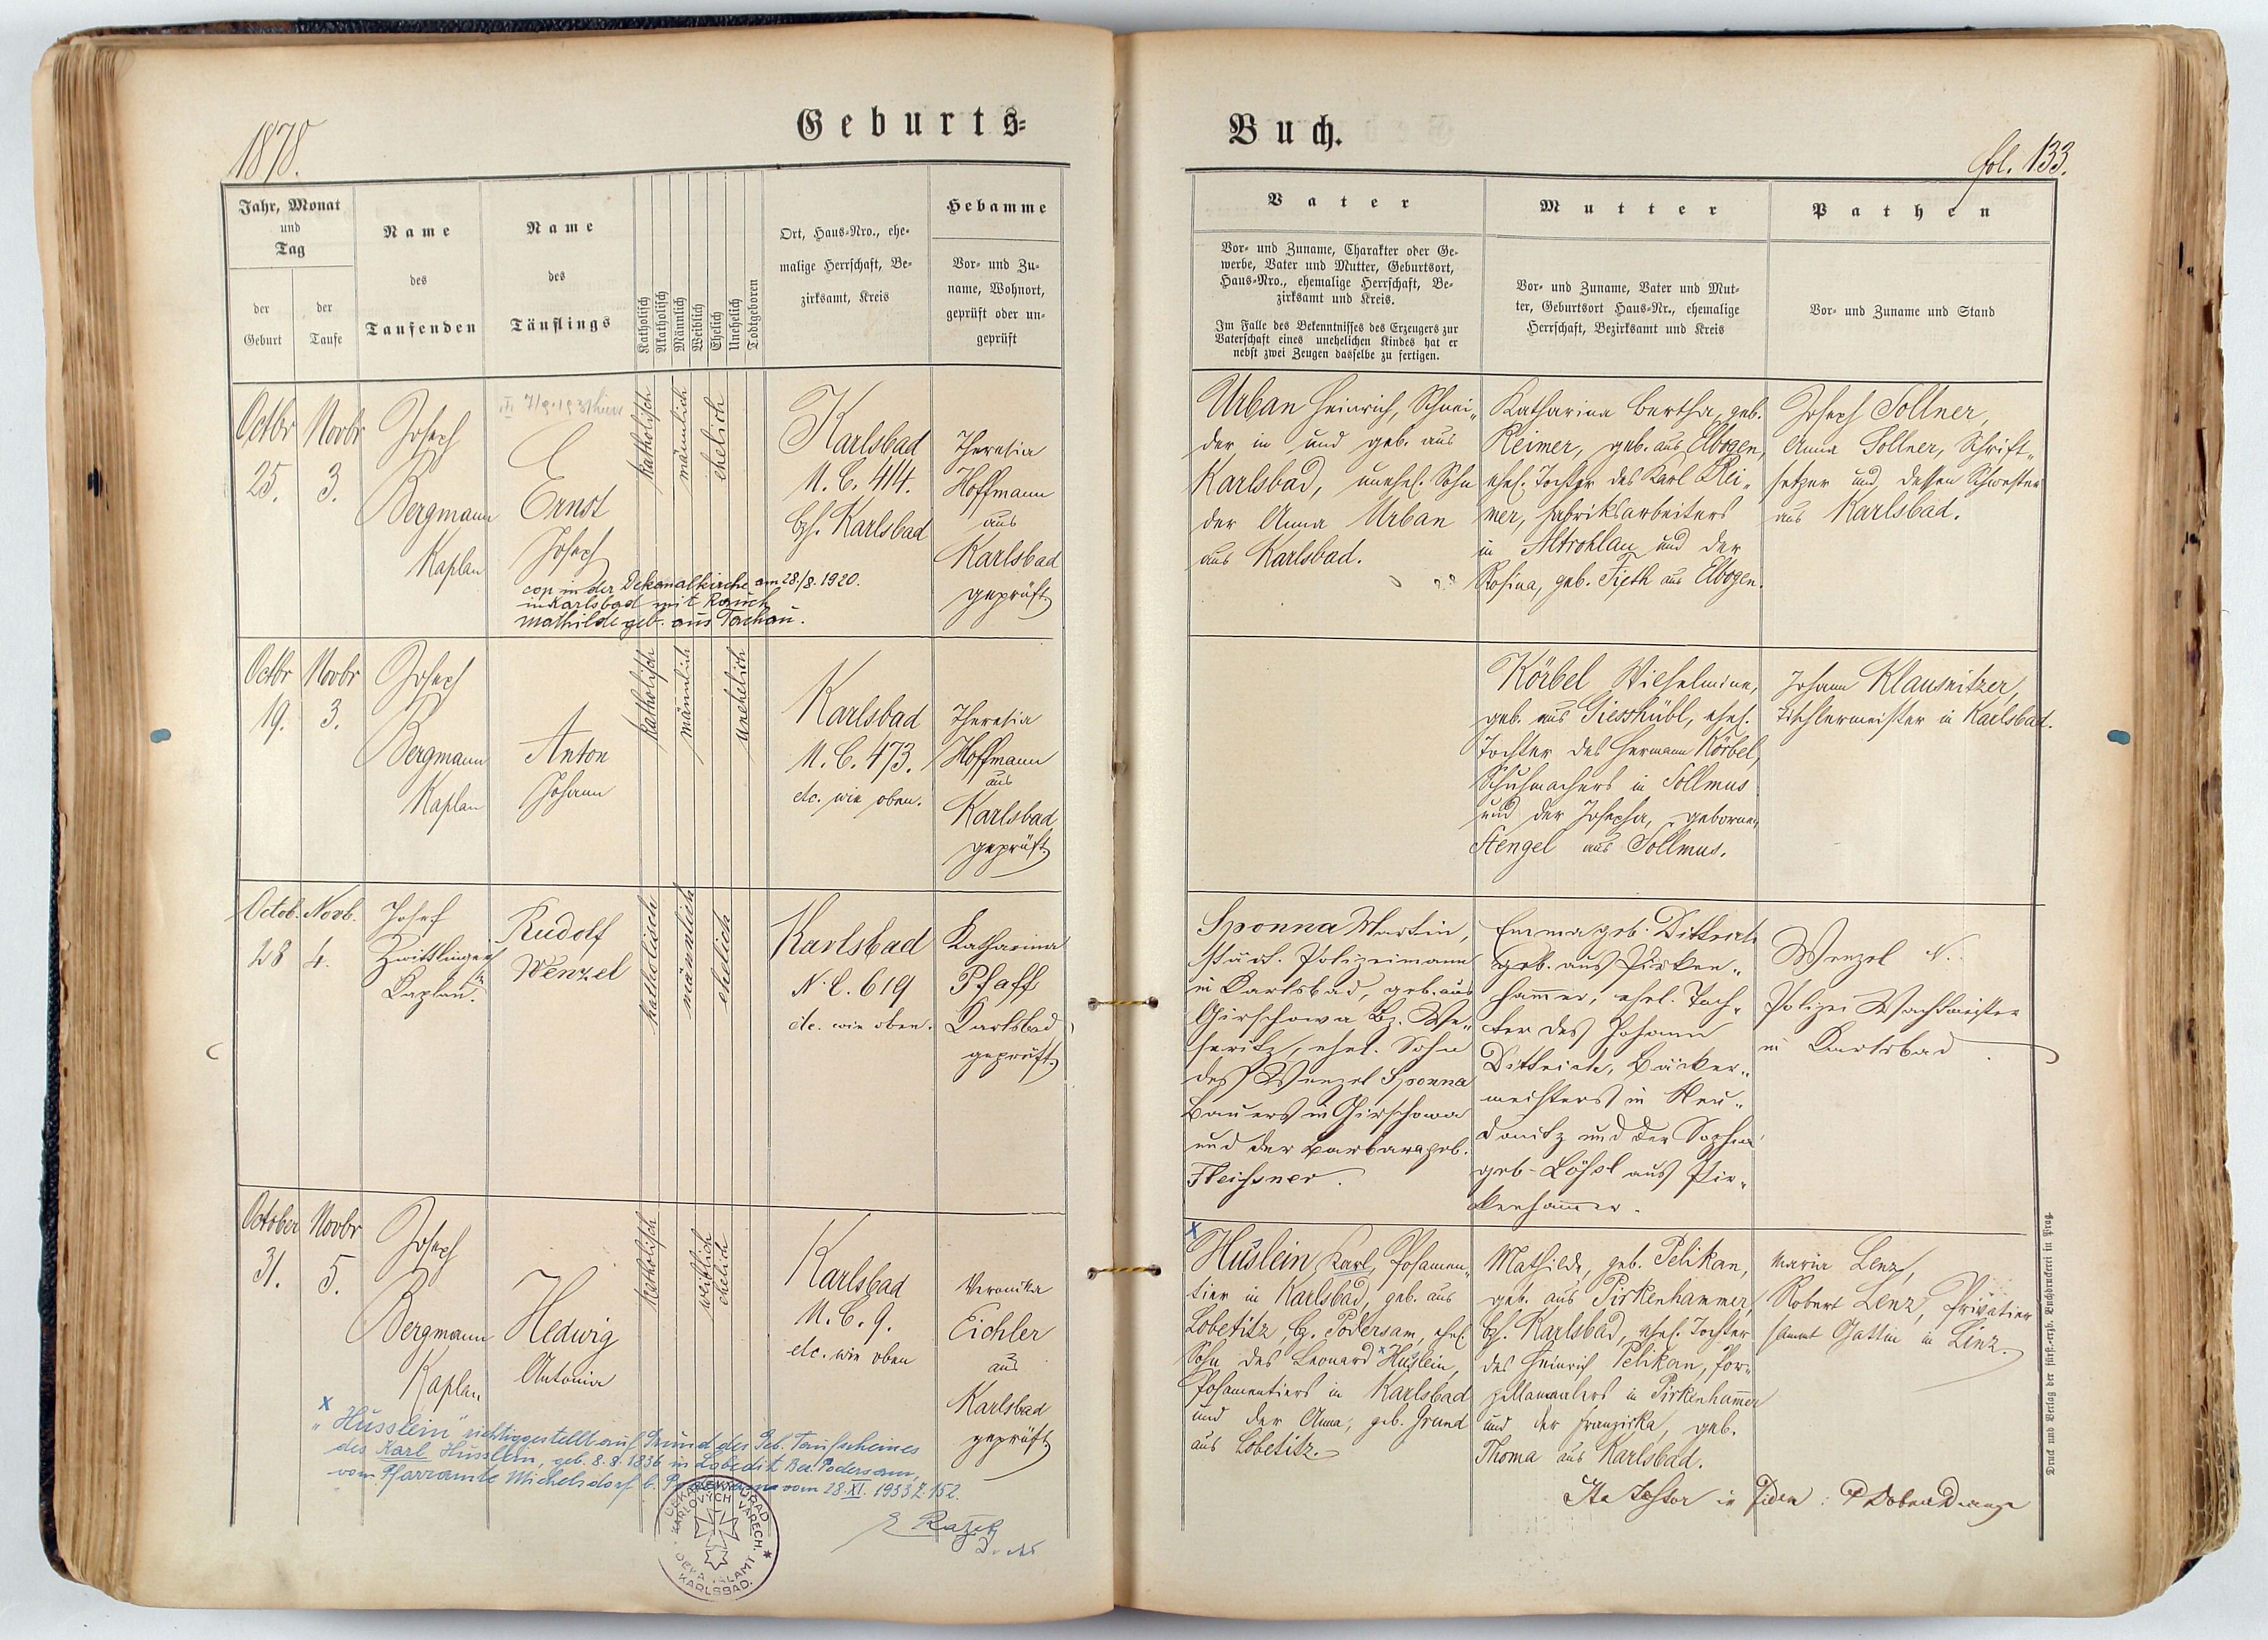 1878.
Geburts-
Buch.
fol. 133.
Jahr, Monat
und
Tag
der
Geburt
der
Taufe
Name
des
Taufenden
Name
des
Täuflings
Katholisch
Akatholisch
Männlich
Weiblich
Ehelich
Unehelich
Todtgeboren
Ort, Haus-Nro., ehe-
malige Herrschaft, Be-
zirksamt, Kreis
Hebamme
Vor- und Zu-
name, Wohnort,
geprüft oder un-
geprüft
Vater
Vor- und Zuname, Charakter oder Ge-
werbe, Vater und Mutter, Geburtsort,
Haus-Nro., ehemalige Herrschaft, Be-
zirksamt und Kreis.
Im Falle des Bekenntnisses des Erzeugers zur
Vaterschaft eines unehelichen Kindes hat er
nebst zwei Zeugen dasselbe zu fertigen.
Mutter
Vor- und Zuname, Vater und Mut-
ter, Geburtsort Haus-Nr., ehemalige
Herrschaft, Bezirksamt und Kreis
Pathen
Vor- und Zuname und Stand
Octbr
25.
Novbr
3.
Joseph
Bergmann
Kaplan
Ernst
Joseph
cop in der Dekanalkirche am 28/8. 1920.
in Karlsbad mit Rauch
Mathilde geb. aus Tachau.
katholisch
männlich
ehelich
Karlsbad
N. C. 414.
bzh. Karlsbad
Theresia
Hoffmann
aus
Karlsbad
geprüft
Urban Heinrich, Schnei-
der in und geb. aus
Karlsbad, unehel. Sohn
der Anna Urban
aus Karlsbad.
Katharina Bertha, geb.
Reimer, geb. aus Elbogen,
ehel. Tochter des Karl Rei-
mer, Fabriksarbeiters
in Altrohlau und der
Rosina, geb. Fieth aus Elbogen.
Joseph Sollner,
Anna Sollner, Schrift-
setzer und dessen Schwester
aus Karlsbad.
Octbr
19.
Novbr
3.
Joseph
Bergmann
Kaplan
Anton
Johann
katholisch
männlich
unehelich
Karlsbad
N. C. 473.
etc. wie oben.
Theresia
Hoffmann
aus
Karlsbad
geprüft
Körbel Wilhelmine,
geb. aus Giesshübl, ehel.
Tochter des Hermann Körbel,
Schuhmachers in Sollmus
und der Josepha, geborne
Stengel aus Sollmus.
Johann Klausnitzer,
Tischlermeister in Karlsbad.
Octob.
28
Novb.
4.
Josef
Zwittlinger
Kaplan
Rudolf
Wenzel
katholisch
männlich
ehelich
Karlsbad
N. C. 619
etc. wie oben.
Katharina
Pfaff
Karlsbad
geprüft
Sponna Martin,
städt. Polizeimann
in Karlsbad, geb. aus
Girschowa Bz. We-
seritz, ehel. Sohn
des Wenzel Sponna
Bauers in Girschowa
und der Barbara geb.
Fleissner.
Emma geb. Dittrich
geb. aus Pirken-
hammer, ehel. Toch-
ter des Johann
Dittrich, Bäcker-
meisters in Neu-
donitz und der Sophia
geb. Lössl aus Pir-
kenhammer.
Wenzel N.
Polizei Wachtmeister
in Karlsbad
October
31.
Novbr
5.
Joseph
Bergmann
Kaplan
Hedwig
Antonia
katholisch
weiblich
ehelich
Karlsbad
N. C. 9.
etc. wie oben
Veronika
Eichler
aus
Karlsbad
geprüft
x
Huslein Karl, Posamen-
tier in Karlsbad, geb. aus
Lobetitz, bz. Podersam, ehel.
Sohn des Leonard x Huslein,
Posamentiers in Karlsbad
und der Anna, geb. Grund
aus Lobetitz.
Mathilde, geb. Pelikan,
geb. aus Pirkenhammer,
bzh. Karlsbad, ehel. Tochter
des Heinrich Pelikan, Por-
zellanmalers in Pirkenhammer
und der Franziska, geb.
Thoma aus Karlsbad.
Maria Lenz,
Robert Lenz, Privatier
sammt Gattin in Linz.
x
"Hüsslein" richtiggestellt auf Grund des Geb. Taufscheines
des Karl Hüsslein, geb. 8.8.1836 in Lobeditz Bez. Podersam,
vom Pfarramte Michelsdorf b. Podersam vom 28.XI.1933 Z.152.
KARLSBAD.
Druck und Verlag der fürst.-erzb. Buchdruckerei in Prag.